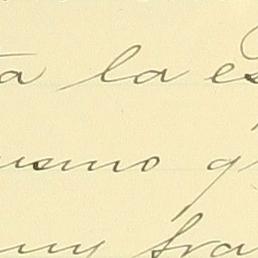 ta la es
usmo q
muy fra